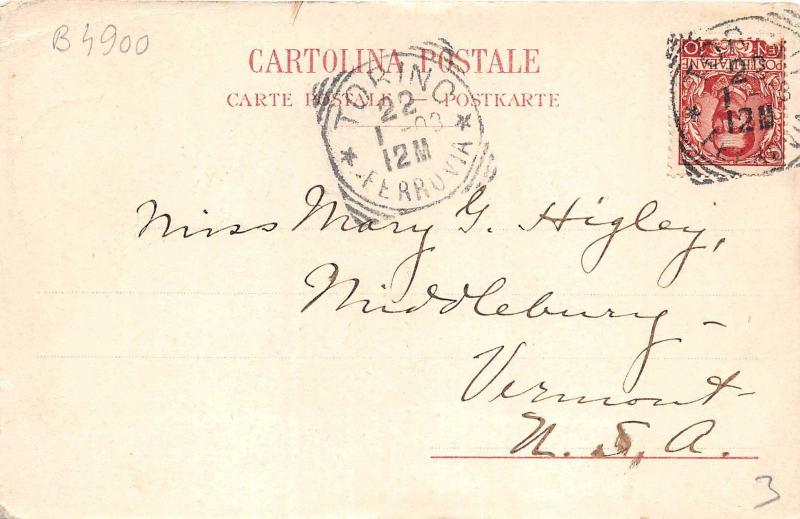 B 4900
CARTOLINA POSTALE
CARTE POSTALE — POSTKARTE
TORINO
22
1 - 03
12 M
* FERROVIA *
POSTE ITALIANE
Miss Mary G. Higley,
Middlebury -
Vermont -
U. S. A.
3